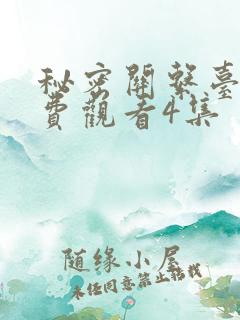 秘密關繫臺
費觀看4集
随缘小屋
未经同意禁止转载